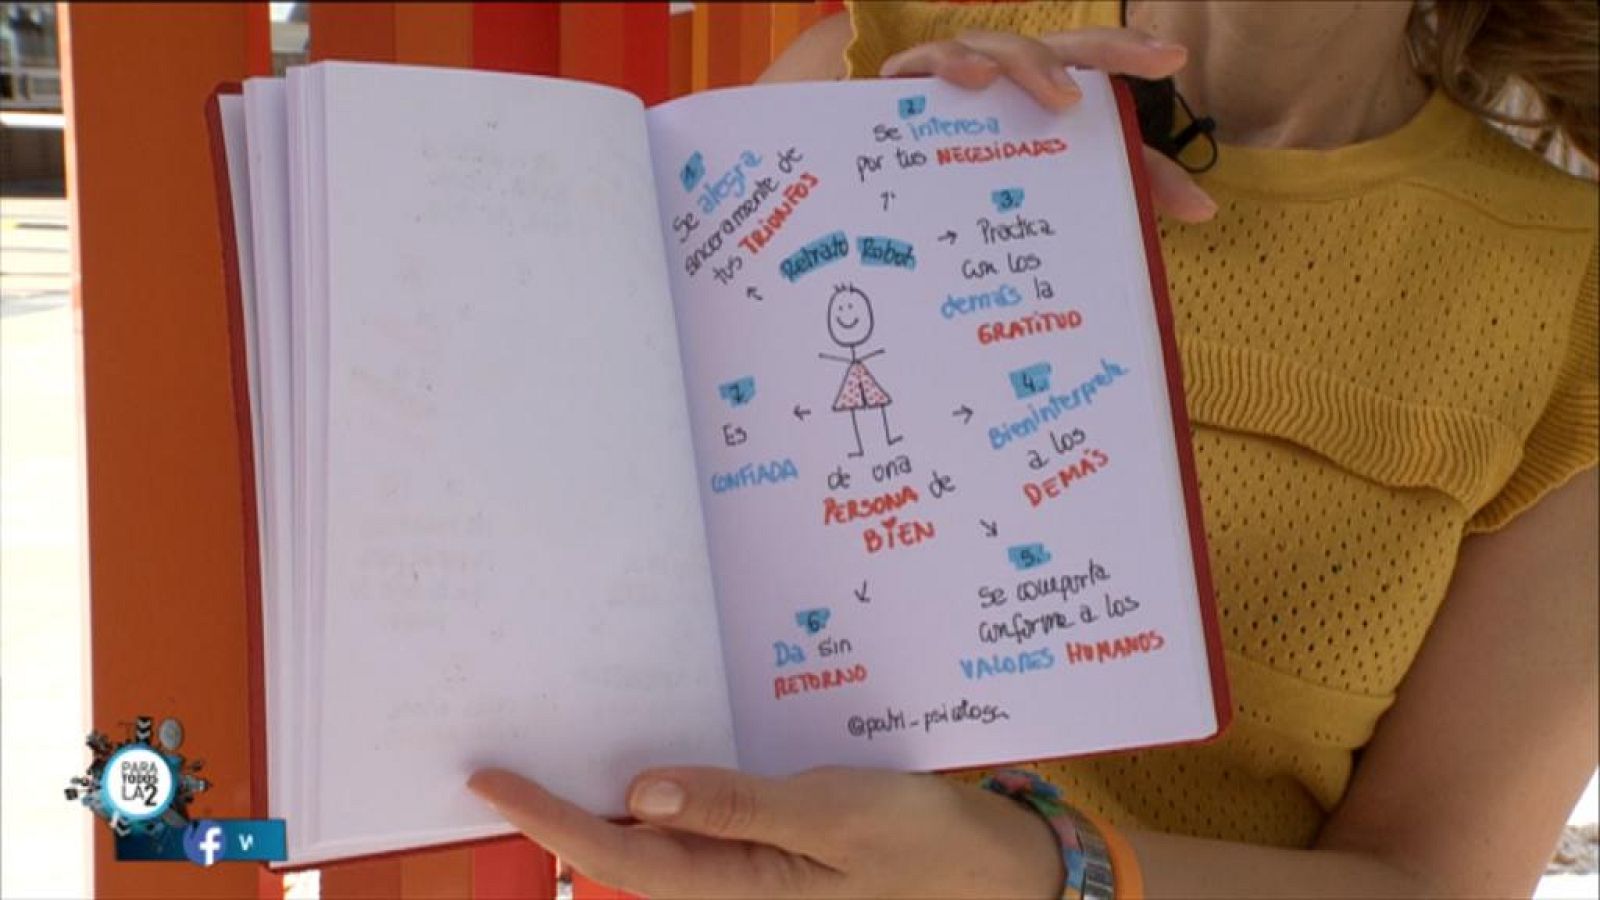 1.
Se alegra
sinceramente de
tus TRIUNFOS
2.
se interesa
por tus NECESIDADES
3.
Practica
con los
demás la
GRATITUD
Retrato Robot
4.
Bieninterpreta
a los
DEMÁS
7.
Es
CONFIADA
de una
PERSONA de
BIEN
5.
Se comporta
conforme a los
VALORES HUMANOS
6.
Da sin
RETORNO
@patri_psicologa
PARA
TODOS
LA 2
f